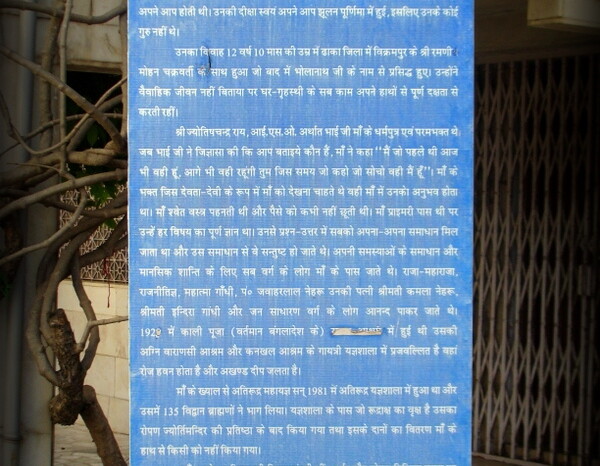 अपने आप होती थी। उनकी दीक्षा स्वयं अपने आप झूलन पूर्णिमा में हुई, इसलिए उनके कोई
गुरु नहीं थे।
उनका विवाह 12 वर्ष 10 मास की उम्र में ढाका जिला में विक्रमपुर के श्री रमणी
मोहन चक्रवर्ती के साथ हुआ जो बाद में भोलानाथ जी के नाम से प्रसिद्ध हुए। उन्होंने
वैवाहिक जीवन नहीं बिताया पर घर-गृहस्थी के सब काम अपने हाथों से पूर्ण दक्षता से
करती रहीं।
श्री ज्योतिषचन्द्र राय, आई.एस.ओ. अर्थात भाई जी माँ के धर्मपुत्र एवं परमभक्त थे
जब भाई जी ने जिज्ञासा की कि आप बताइये कौन हैं, माँ ने कहा "मैं जो पहले थी आज
भी वही हूं, आगे भी वही रहूंगी तुम जिस समय जो कहो जो सोचो वही मैं हूँ"। माँ के
भक्त जिस देवता-देवी के रूप में माँ को देखना चाहते थे वही माँ में उनको अनुभव होता
था। माँ श्वेत वस्त्र पहनती थी और पैसे को कभी नहीं छूती थी। माँ प्राइमरी पास थी पर
उन्हें हर विषय का पूर्ण ज्ञान था। उनसे प्रश्न-उत्तर में सबको अपना-अपना समाधान मिल
जाता था और उस समाधान से वे सन्तुष्ट हो जाते थे। अपनी समस्याओं के समाधान और
मानसिक शान्ति के लिए सब वर्ग के लोग माँ के पास जाते थे। राजा-महाराजा,
राजनीतिज्ञ, महात्मा गाँधी, पं० जवाहरलाल नेहरू उनकी पत्नी श्रीमती कमला नेहरू,
श्रीमती इन्दिरा गांधी और जन साधारण वर्ग के लोग आनन्द पाकर जाते थे।
में काली पूजा (वर्तमान बंगलादेश के) में हुई थी उसकी
अग्नि वाराणसी आश्रम और कनखल आश्रम के गायत्री यज्ञशाला में प्रजवल्लित है वहां
रोज हवन होता है और अखण्ड दीप जलता है।
माँ के ख्याल से अतिरूद्र महायज्ञ सन् 1981 में अतिरूद्र यज्ञशाला में हुआ था और
उसमें 135 विद्वान ब्राह्मणों ने भाग लिया। यज्ञशाला के पास जो रूद्राक्ष का वृक्ष है उसका
रोपण ज्योर्तिमन्दिर की प्रतिष्ठा के बाद किया गया तथा इसके दानों का वितरण माँ के
हाथ से किसी को नहीं किया गया।